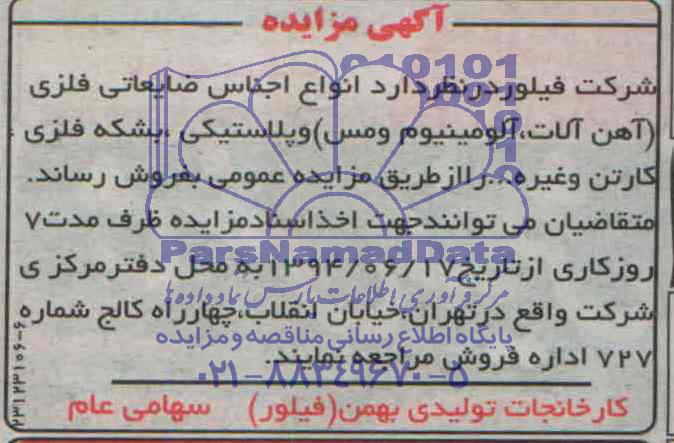 آگهی مزایده
شرکت فیلوردرنظردارد انواع اجناس ضایعاتی فلزی
(آهن آلات،آلومینیوم ومس)وپلاستیکی ،بشکه فلزی ،
کارتن وغیره...راازطریق مزایده عمومی بفروش رساند.
متقاضیان می توانندجهت اخذاسنادمزایده ظرف مدت۷
روزکاری ازتاریخ۱۳۹۴/۰۶/۱۷به محل دفترمرکز ی
شرکت واقع درتهران،خیابان انقلاب،چهارراه کالج شماره
۷۲۷ اداره فروش مراجعه نمایند.
کارخانجات تولیدی بهمن(فیلور) سهامی عام
ParsNamadData
مرکز فرآوری اطلاعات پارس نماد داده ها
پایگاه اطلاع رسانی مناقصه و مزایده
۰۲۱-۸۸۳۴۹۶۷۰-۵